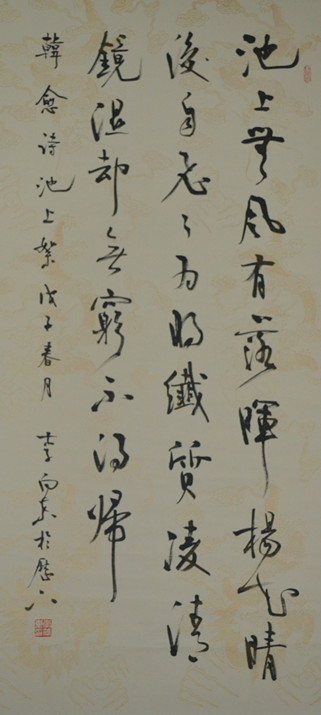 池上無風有落暉楊花晴
後自飛々為將纖質凌清
鏡濕却無窮不得歸
韓愈詩池上絮戊子春月李向東於歷下